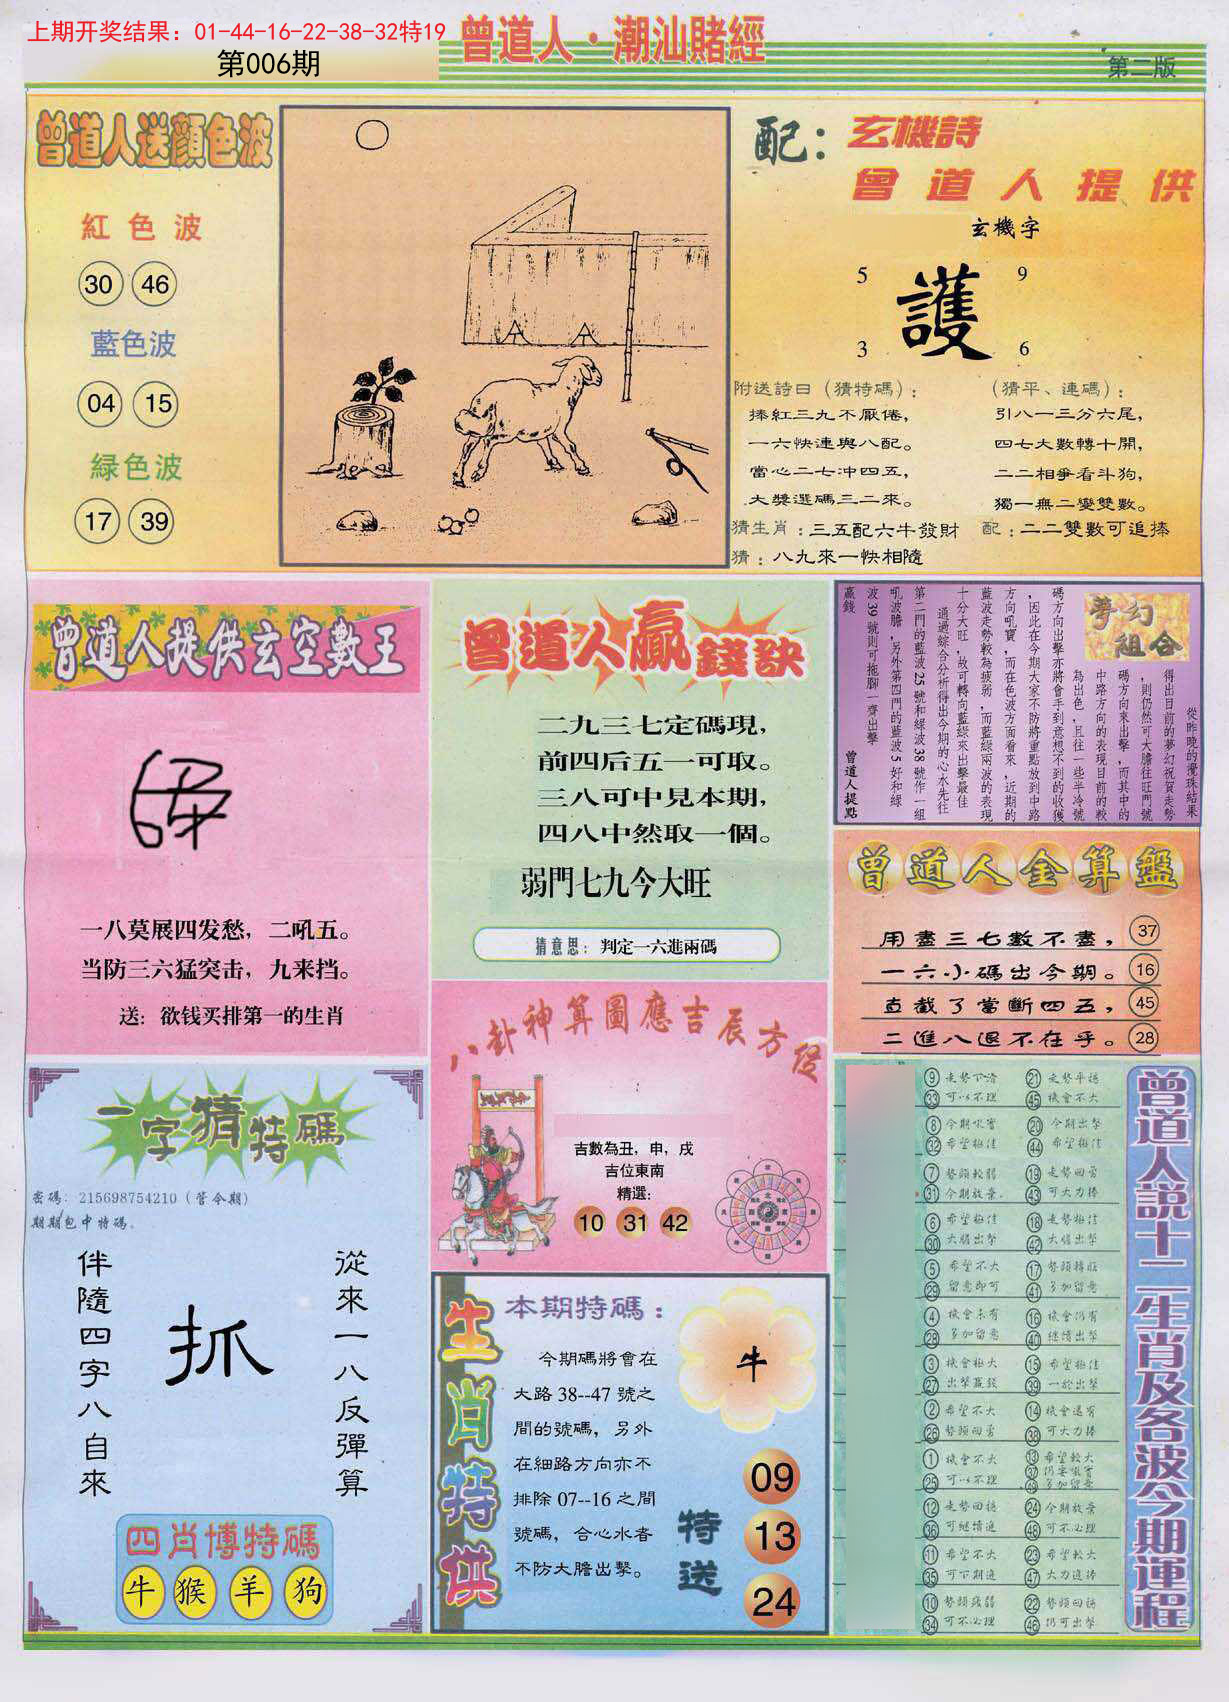 上期开奖结果：01-44-16-22-38-32特19
第006期
曾道人·潮汕賭經
第二版
曾道人送顏色波
紅色波
30 46
藍色波
04 15
緑色波
17 39
配：玄機詩
曾道人提供
玄機字
5 9
護
3 6
附送詩曰（猜特碼）：
捧紅三九不厭倦，
一六快連與八配。
當心二七冲四五，
大獎選碼三二來。
（猜平、連碼）：
引八一三分六尾，
四七大數轉十開，
二二相爭看斗狗，
獨一無二變雙數。
猜生肖：三五配六牛發財
配：二二雙數可追捧
猜：八九來一快相隨
曾道人提供玄空數王
一八莫展四发愁，二吼五。
当防三六猛突击，九来挡。
送：欲钱买排第一的生肖
曾道人贏錢訣
二九三七定碼現，
前四后五一可取。
三八可中見本期，
四八中然取一個。
弱門七九今大旺
猜意思：判定一六進兩碼
夢幻組合
從昨晚的攪珠結果
得出目前的夢幻祝賀走勢
，則仍然可大膽往旺門號
碼方向來出擊，而其中的
中路方向的表現目前的較
為出色，且往一些半冷號
碼方向出擊亦將會手到意想不到的收獲
，因此在今期大家不防將重點放到中路
方向吼寶，而在色波方面看來，近期的
藍波走勢較為疲弱，而藍綠兩波的表現
十分大旺，故可轉向藍綠來出擊最佳
通過綜合分析得出今期的心水先往
第二門的藍波25號和綠波38號作一組
吼波膽，另外第四門的藍波5好和綠
波39號則可拖腳一齊出擊
贏錢
曾道人提點
曾道人金算盤
用盡三七數不盡， 37
一六小碼出今期。 16
直截了當斷四五， 45
二進八退不在乎。 28
八卦神算圖應吉辰方位
吉數為丑，申，戌
吉位東南
精選：
10 31 42
一字猜特碼
密碼：215698754210（管今期）
期期包中特碼。
從來一八反彈算
抓
伴隨四字八自來
四肖博特碼
牛 猴 羊 狗
生肖特供
本期特碼：
今期碼將會在
大路38--47號之
間的號碼，另外
在細路方向亦不
排除07--16之間
號碼，合心水者
不防大膽出擊。
牛
特送
09
13
24
曾道人説十二生肖及各波今期運程
9 走勢下滑
33 可以不理
21 走勢平穩
45 機會不大
8 今期吼實
32 希望極佳
20 今期出擊
44 希望極佳
7 勢頭較弱
31 今期放棄
19 走勢回勇
43 可大力捧
6 希望極佳
30 大膽出擊
18 走勢極佳
42 大膽出擊
5 希望不大
29 留意即可
17 勢頭轉旺
41 多加留意
4 機會未有
28 多加留意
16 機會仍有
40 繼續出擊
3 機會極大
27 出擊贏錢
15 希望極佳
39 一於出擊
2 希望不大
26 勢頭回勇
14 機會還有
38 可大力捧
1 機會不大
25 可以不理
13 希望較大
37 仍要吼實
49 多加留意
12 走勢回穩
36 可繼續追
24 今期放棄
48 可不必理
11 希望不大
35 可下期追
23 希望較大
47 大力追捧
10 勢頭疲弱
34 可不必理
22 勢頭回穩
46 仍可出擊